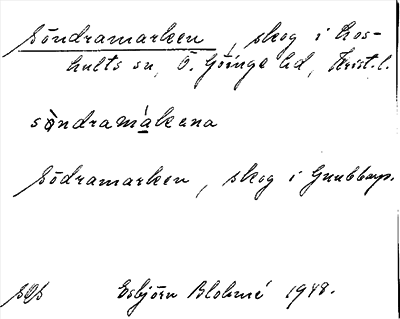 Söndramarken, skog i Los-
hults sn, Ö. Göinge hd, Krist. l.
sòndramákana
Södramarken, skog i Gnubbarp.
Esbjörn Blohmé 1948.